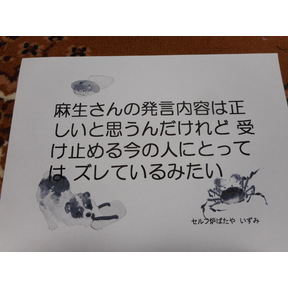 麻生さんの発言内容は正
しいと思うんだけれど 受
け止める今の人にとって
は ズレているみたい
セルフ炉ばたや いずみ